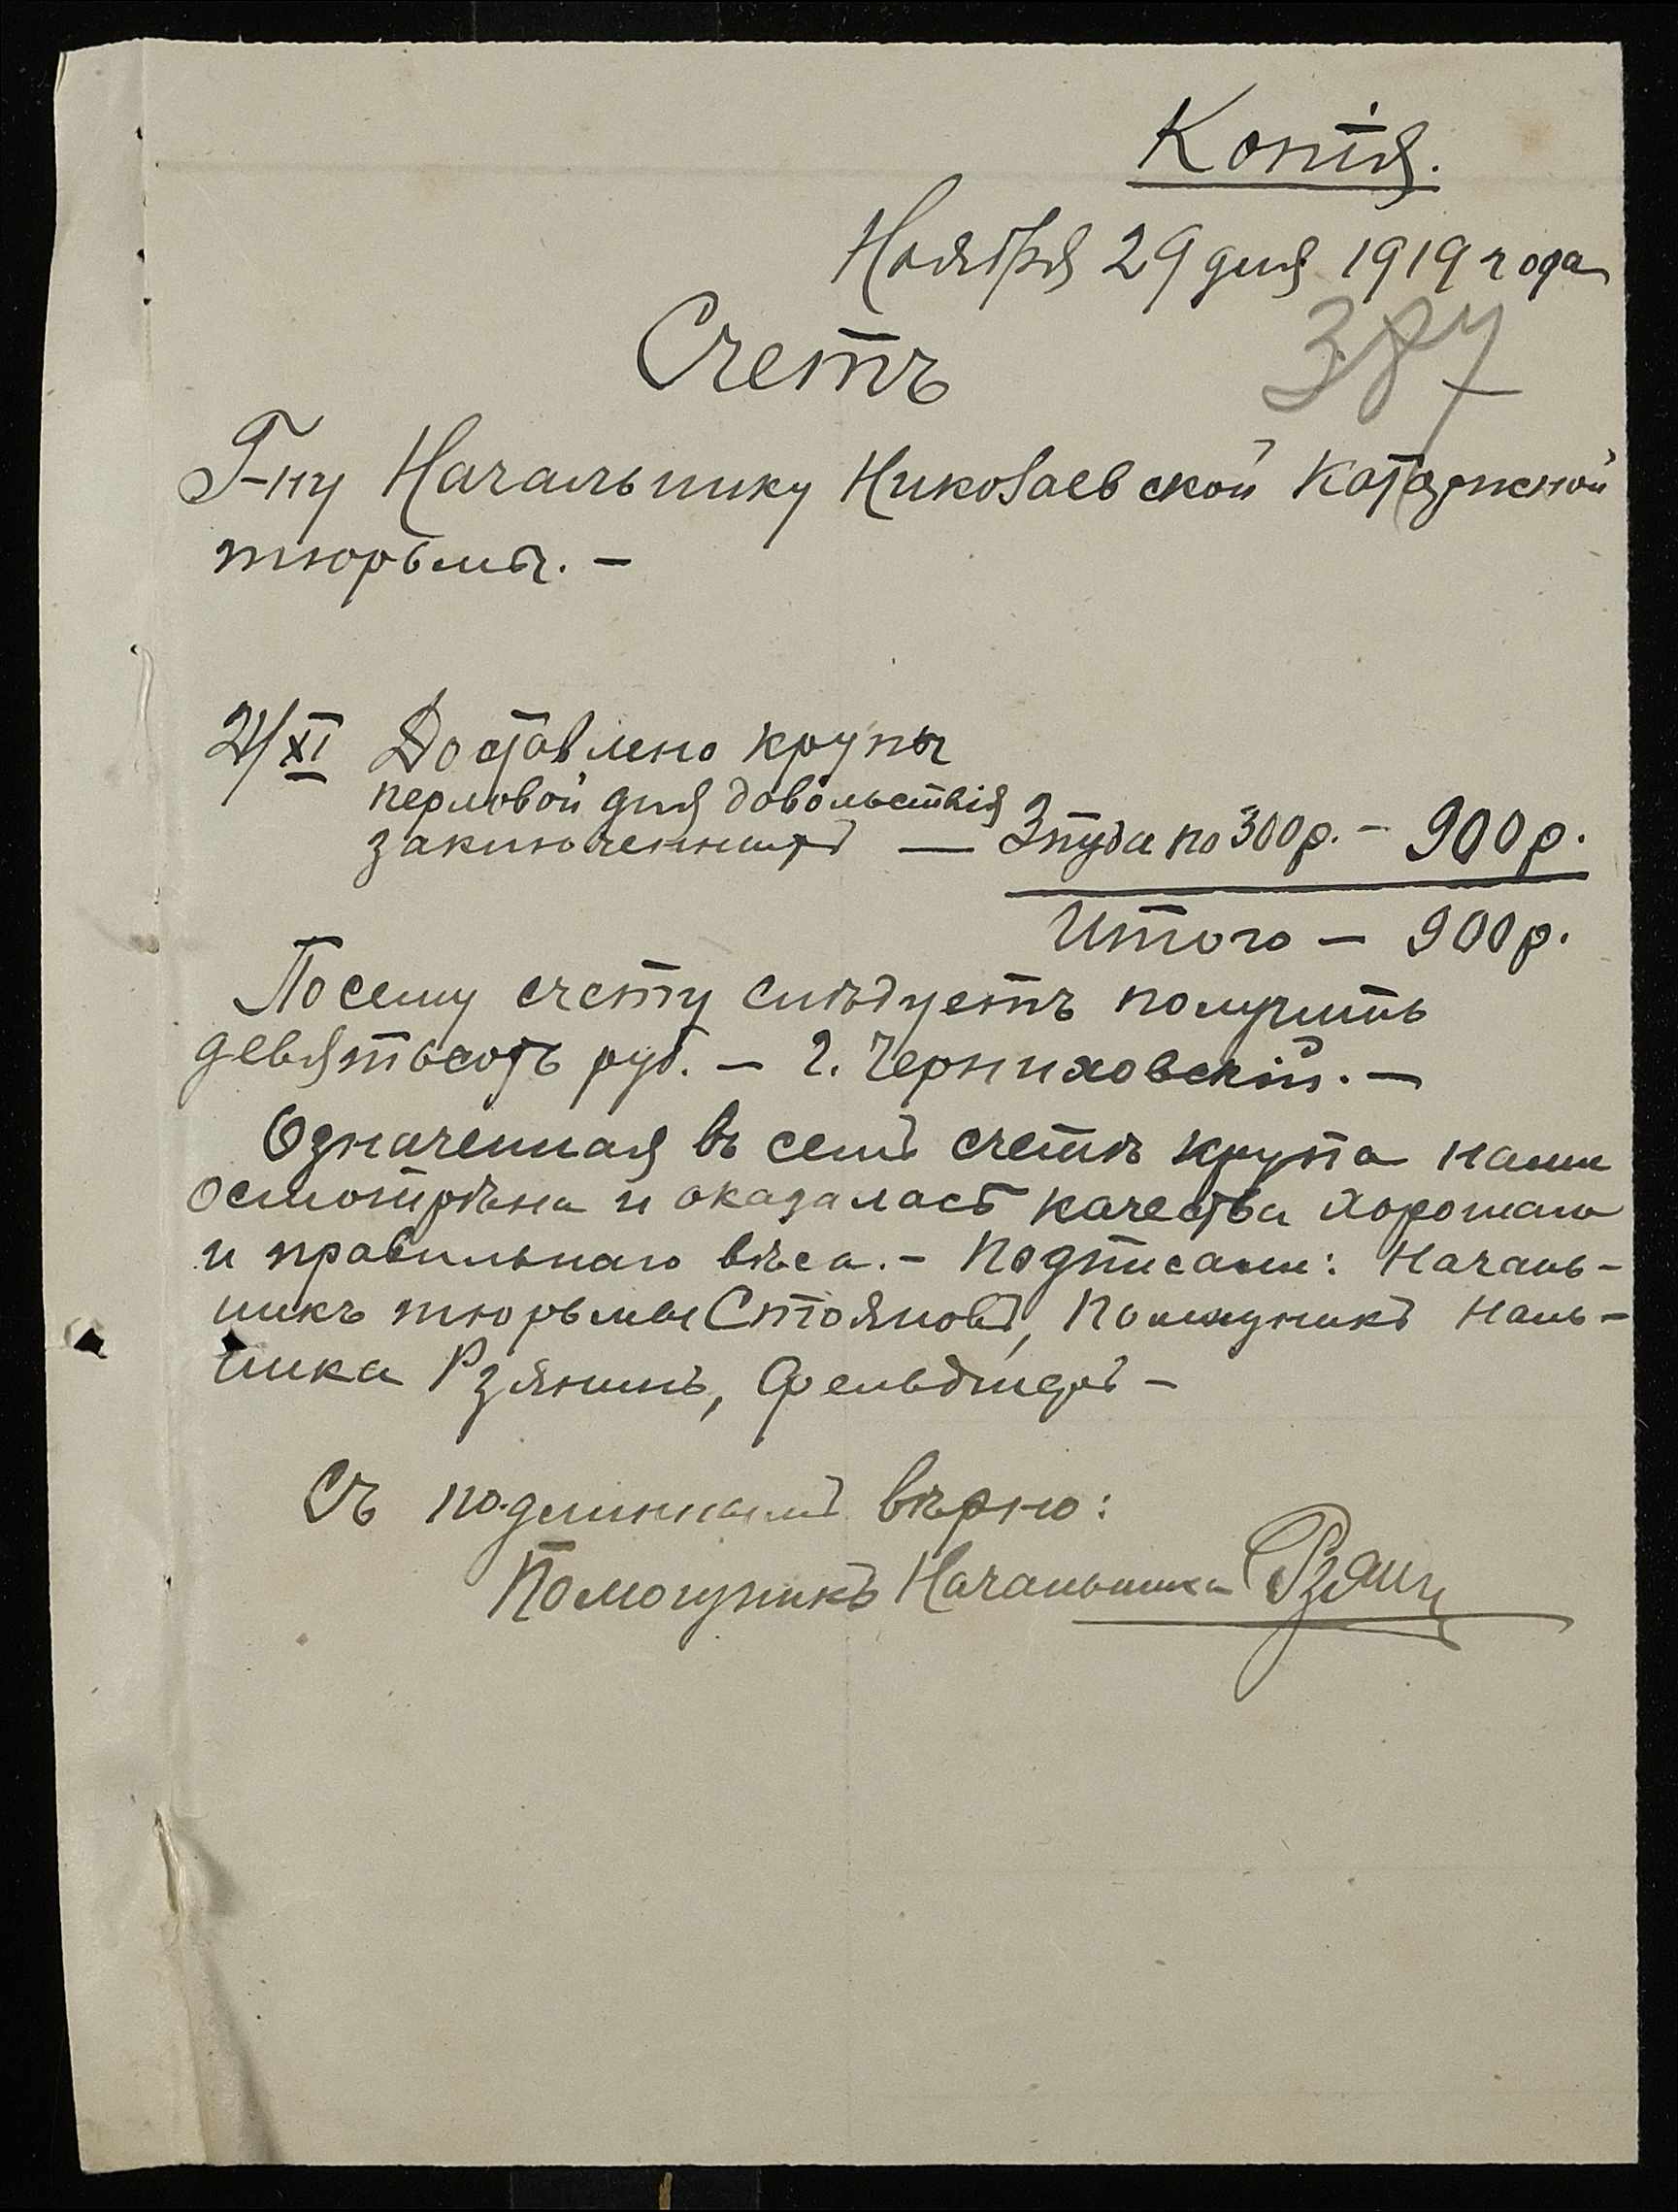 Копія.
Ноября 29 дня 1919 года
387
Счетъ
Г-ну Начальнику Николаевской Каторжной
тюрьмы. —
21/XI Доставлено крупы
перловой для довольствія
заключенныхъ — 3 пуда по 300 р. — 900 р.
Итого — 900 р.
По сему счету слѣдуетъ получить
девятьсотъ руб. — Г. Черниховскій. —
Означенная въ семъ счетѣ крупа нами
осмотрѣна и оказалась качества хорошаго
и правильнаго вѣса. — Подписали: Началь-
никъ тюрьмы Стояновъ, Помощникъ Наль-
ника Рзянинъ, Фельдшеръ —
Съ подлиннымъ вѣрно:
Помощникъ Начальника Рзянин